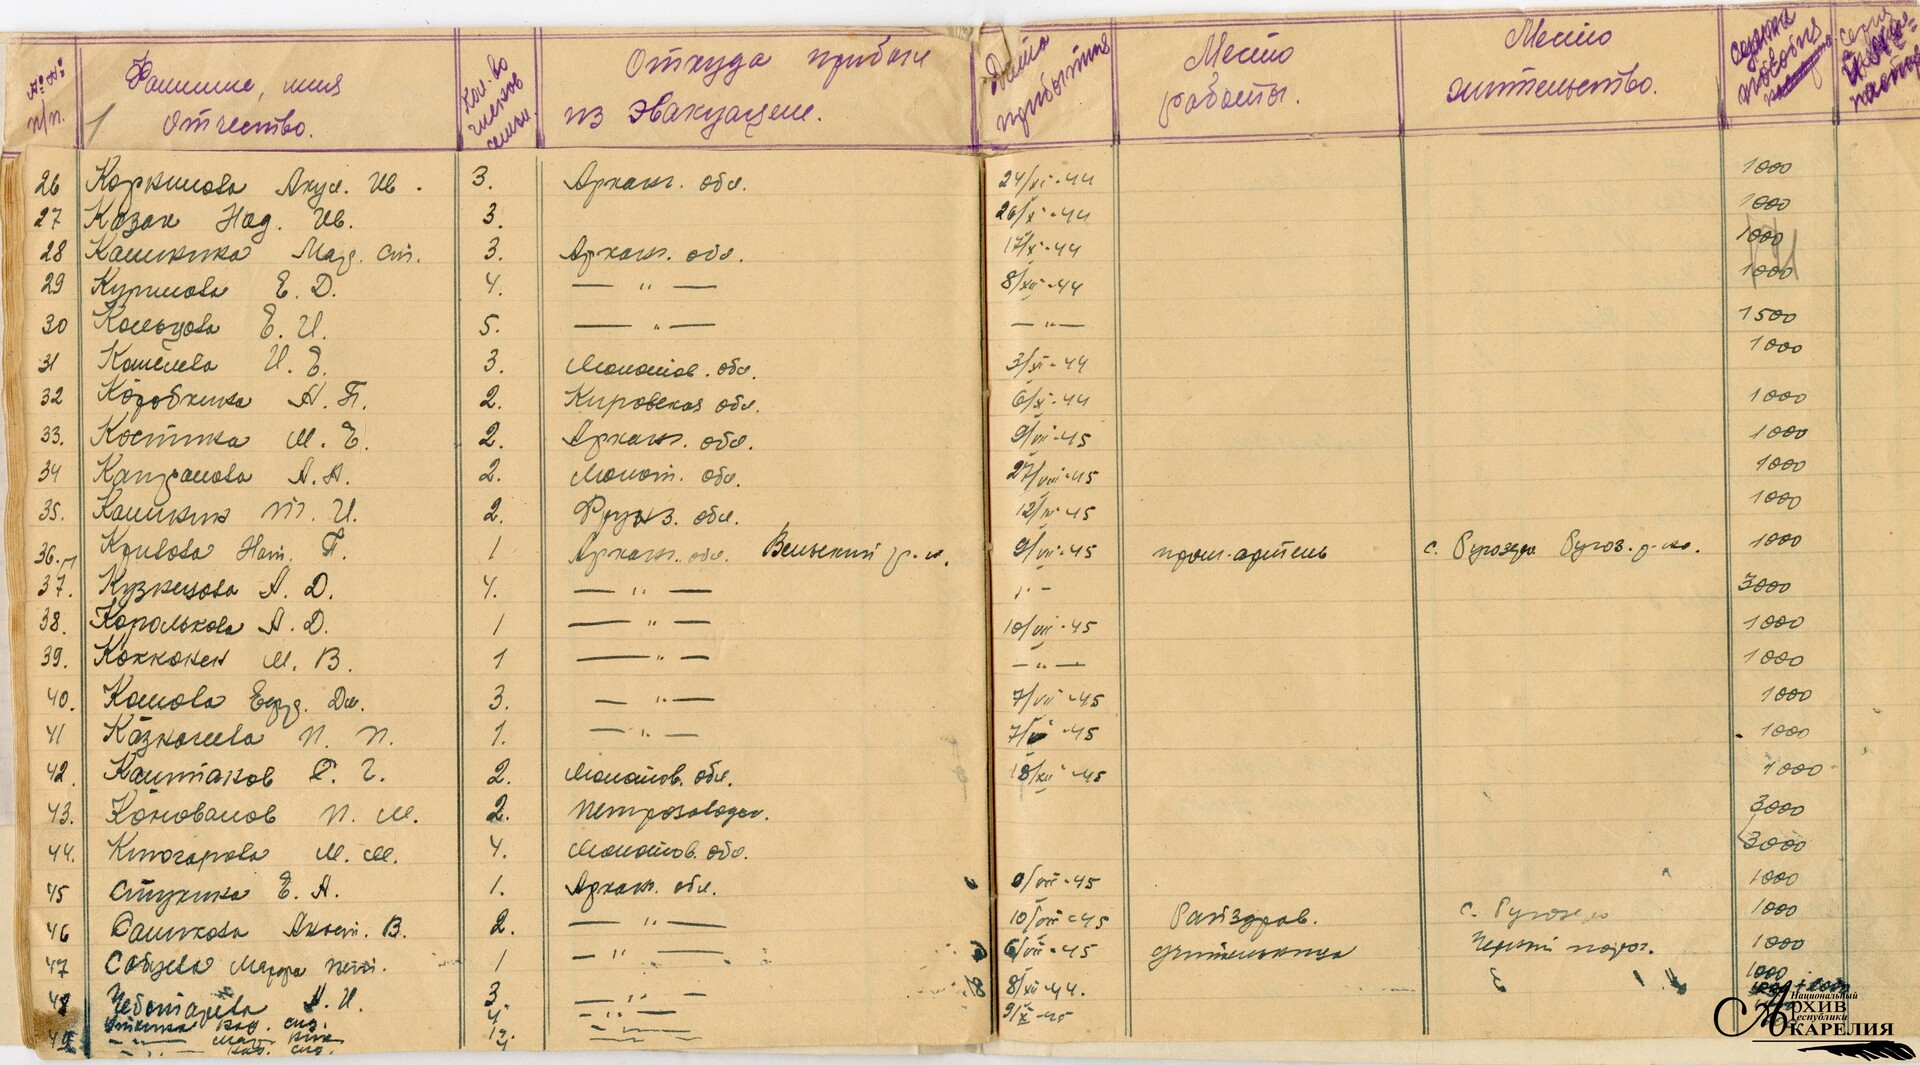 № №
п/п.
Фамилие, имя
Отчество.
Кол-во
членов
семьи.
Откуда прибыли
из Эвакуации.
Дата
прибытия
Место
работы.
Место
жительство.
пособия
26 Акул. Ив. 3. Арханг. обл. 24/XI-44 1000
27 Казак Над. Ив. 3. 26/X-44 1000
28 Кашкина Мар. Ст. 3. Арханг. обл. 17/X-44 1000
29 Е. Д. 4. — " — 8/XII-44 1000
30 Кольцова Е. И. 5. — " — — " — 1500
31 Кошелева И. Е. 3. Молотов. обл. 3/XI-44 1000
32 Коробкина А. П. 2. Кировская обл. 6/XI-44 1000
33. Костина М. Е. 2. Арханг. обл. 9/VII-45 1000
34 А. А. 2. Молот. обл. 27/VIII-45 1000
35. Кашкин И. 2. Фрунз. обл. 12/IV-45 1000
36. Кривова Нат. П. 1 Арханг. обл. Вельский р-н. 9/VII-45 пром-артель с. Ругозеро Ругоз. р-на. 1000
37. Кузнецова А. Д. 4. — " — " - 3000
38. Королькова А. Д. 1 — " — 10/VII-45 1000
39. Кокконен М. В. 1 — " — — " — 1000
40. Комова Евд. Дм. 3. — " — 7/VII-45 1000
41 Казначеева П. П. 1. — " — 7/ -45 1000
42. Каштанов Г. 2. Молотов. обл. 18/XII-45 1000
43. Коновалов П. М. 2. Петрозаводск. 3000
44. М. М. 4. Молотов. обл. 3000
45 Стукина Е. А. 1. Арханг. обл. /VII-45 1000
46 Сашкова В. 2. — " — 10/VII-45 Райздрав. с. Ругозеро 1000
47 Марфа Пет. 1 — " — 6/VII-45 учительница Черный порог. 1000
48 Чеботарева И. 3. — " — 8/XII-44. 1000
— " — 9/X-45
49
Национальный
Архив
Республики
КАРЕЛИЯ